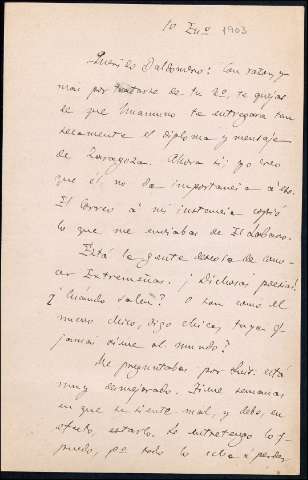 10 Enº 1903
Querido Baldomero: Con razón, y
mas por tratarse de tu Rº, te quejas
de que Unamuno te entregara tan
secamente el diploma y mensaje
de Zaragoza. Ahora si yo creo
que él no da importancia á eso.
El Correo á mi instancia copió
lo que me enviabas de El Lábaro.
Está la gente deseosa de cono-
cer Extremeñas. ¡Dichosas poesías!
¿Cuándo salen? O son como el
nuevo chico, digo chicas, tuyas q.
jamás viene al mundo?
Me preguntabas por Luis: está
muy desmejorado. Tiene semanas
en que se siente mal, y debe, en
efecto, estarlo. Le entretengo lo q.
puedo, pº todo lo echa á perder